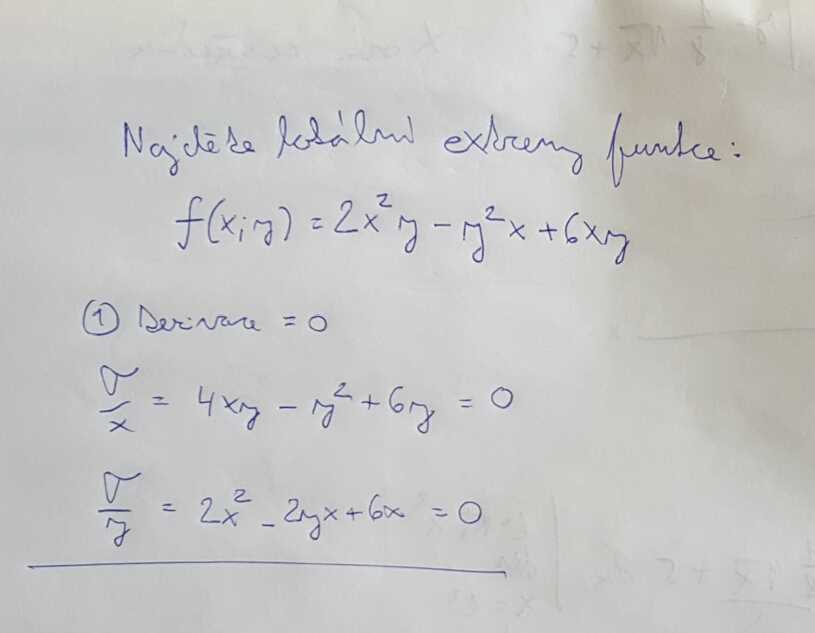 Najděte lokální extremy funkce:
f(x;y) = 2x²y - y²x + 6xy
① Derivace = 0
σ/x = 4xy - y² + 6y = 0
σ/y = 2x² - 2yx + 6x = 0